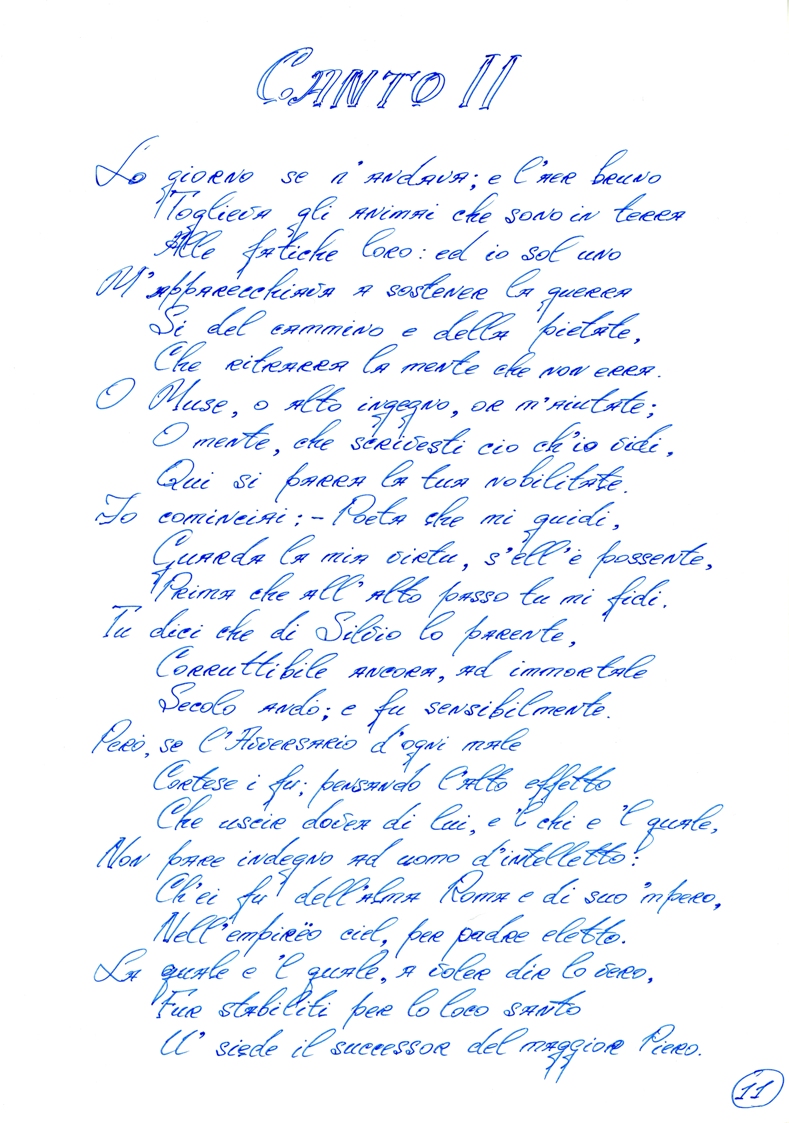 CANTO II
Lo giorno se n'andava; e l'aer bruno
Toglieva gli animai che sono in terra
Alle fatiche loro: ed io sol uno
M'apparecchiava a sostener la guerra
Si del cammino e della pietate,
Che ritrarra la mente che non erra.
O Muse, o alto ingegno, or m'aiutate;
O mente, che scrivesti cio ch'io vidi,
Qui si parra la tua nobilitate.
Io cominciai: – Poeta che mi guidi,
Guarda la mia virtu, s'ell'è possente,
Prima che all'alto passo tu mi fidi.
Tu dici che di Silvio lo parente,
Corruttibile ancora, ad immortale
Secolo andò; e fu sensibilmente.
Però, se l'Avversario d'ogni male
Cortese i fu; pensando l'alto effetto
Che uscir dovea di lui, e 'l chi e 'l quale,
Non pare indegno ad uomo d'intelletto:
Ch'ei fu dell'alma Roma e di suo 'mpero,
Nell'empirëo ciel, per padre eletto.
La quale e 'l quale, a voler dir lo vero,
Fur stabiliti per lo loco santo
U' siede il successor del maggior Piero.
11